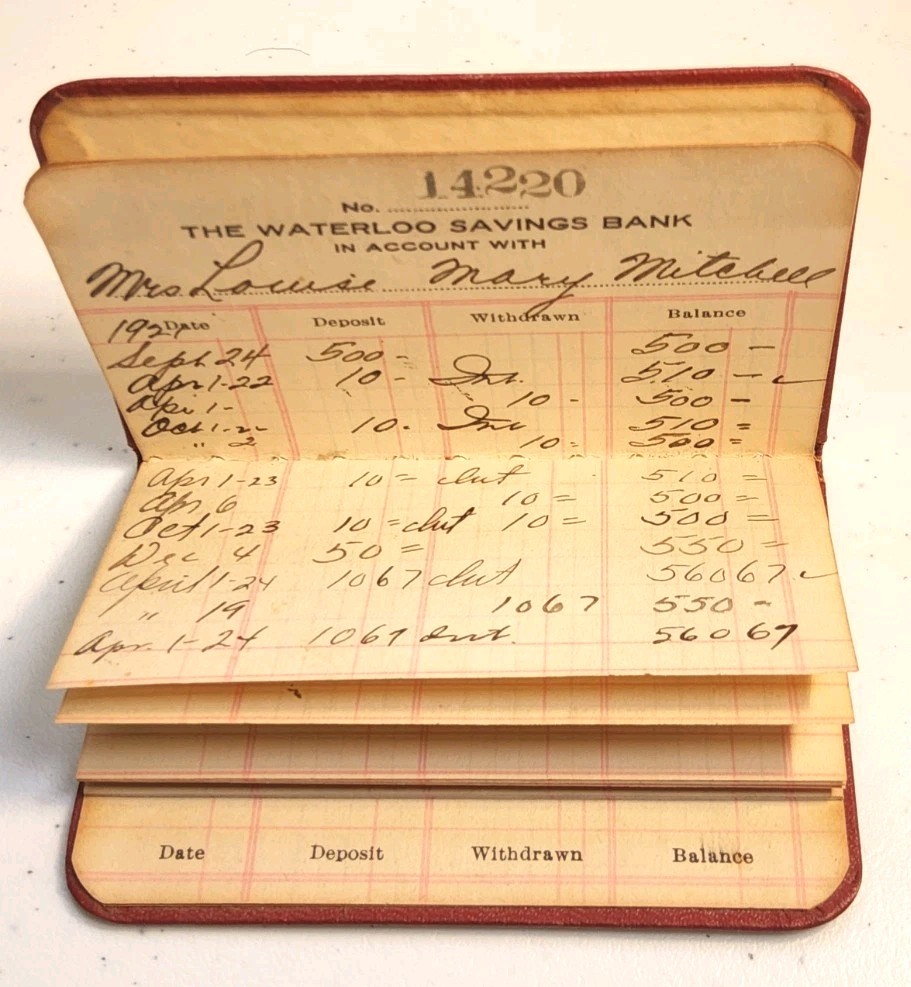 No. 14220
THE WATERLOO SAVINGS BANK
IN ACCOUNT WITH
Mrs Louise Mary Mitchell
1921 Date Deposit Withdrawn Balance
Sept 24 500 - 500 -
Apr 1-22 10 - Int. 510 -
Apr 1- " 10 - 500 -
Oct 1-22 10. Int 510 =
" 2 10 = 500 =
Apr 1-23 10 = Int 510 =
Apr 6 10 = 500 =
Oct 1-23 10 = Int 10 = 500 =
Dec 4 50 = 550 =
April 1-24 10 67 Int 560 67
" 19 10 67 550 -
Apr. 1-24 10 67 Int. 560 67
Date Deposit Withdrawn Balance